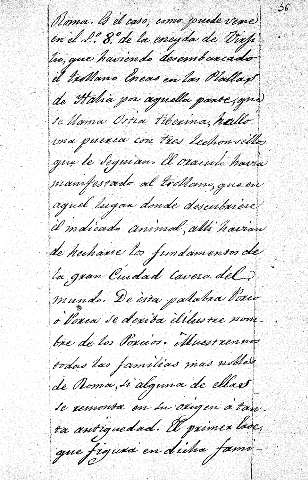 56
Roma. Es el caso, como puede verse
en el L.º 8.º de la eneyda de Virji-
lio, que haviendo desembarcado
el trollano Eneas en las Plallas
de Italia por aquella parte, que
se llama Ostia tiberina, hallo
una puerca con tres lechoncillos
que le seguian. El oraculo havia
manifestado al trollano, que en
aquel lugar donde descubriere
el indicado animal, alli havian
de hecharse los fundamentos de
la gran Ciudad cavera del
mundo. De esta palabra Porco
ó Porca se deriba el ilustre nom-
bre de los Porcios. Muestrennos
todas las familias mas nobles
de Roma, si alguna de ellas
se remonta en su origen á tan-
ta antiguedad. El primer
que figura en dicha fami-